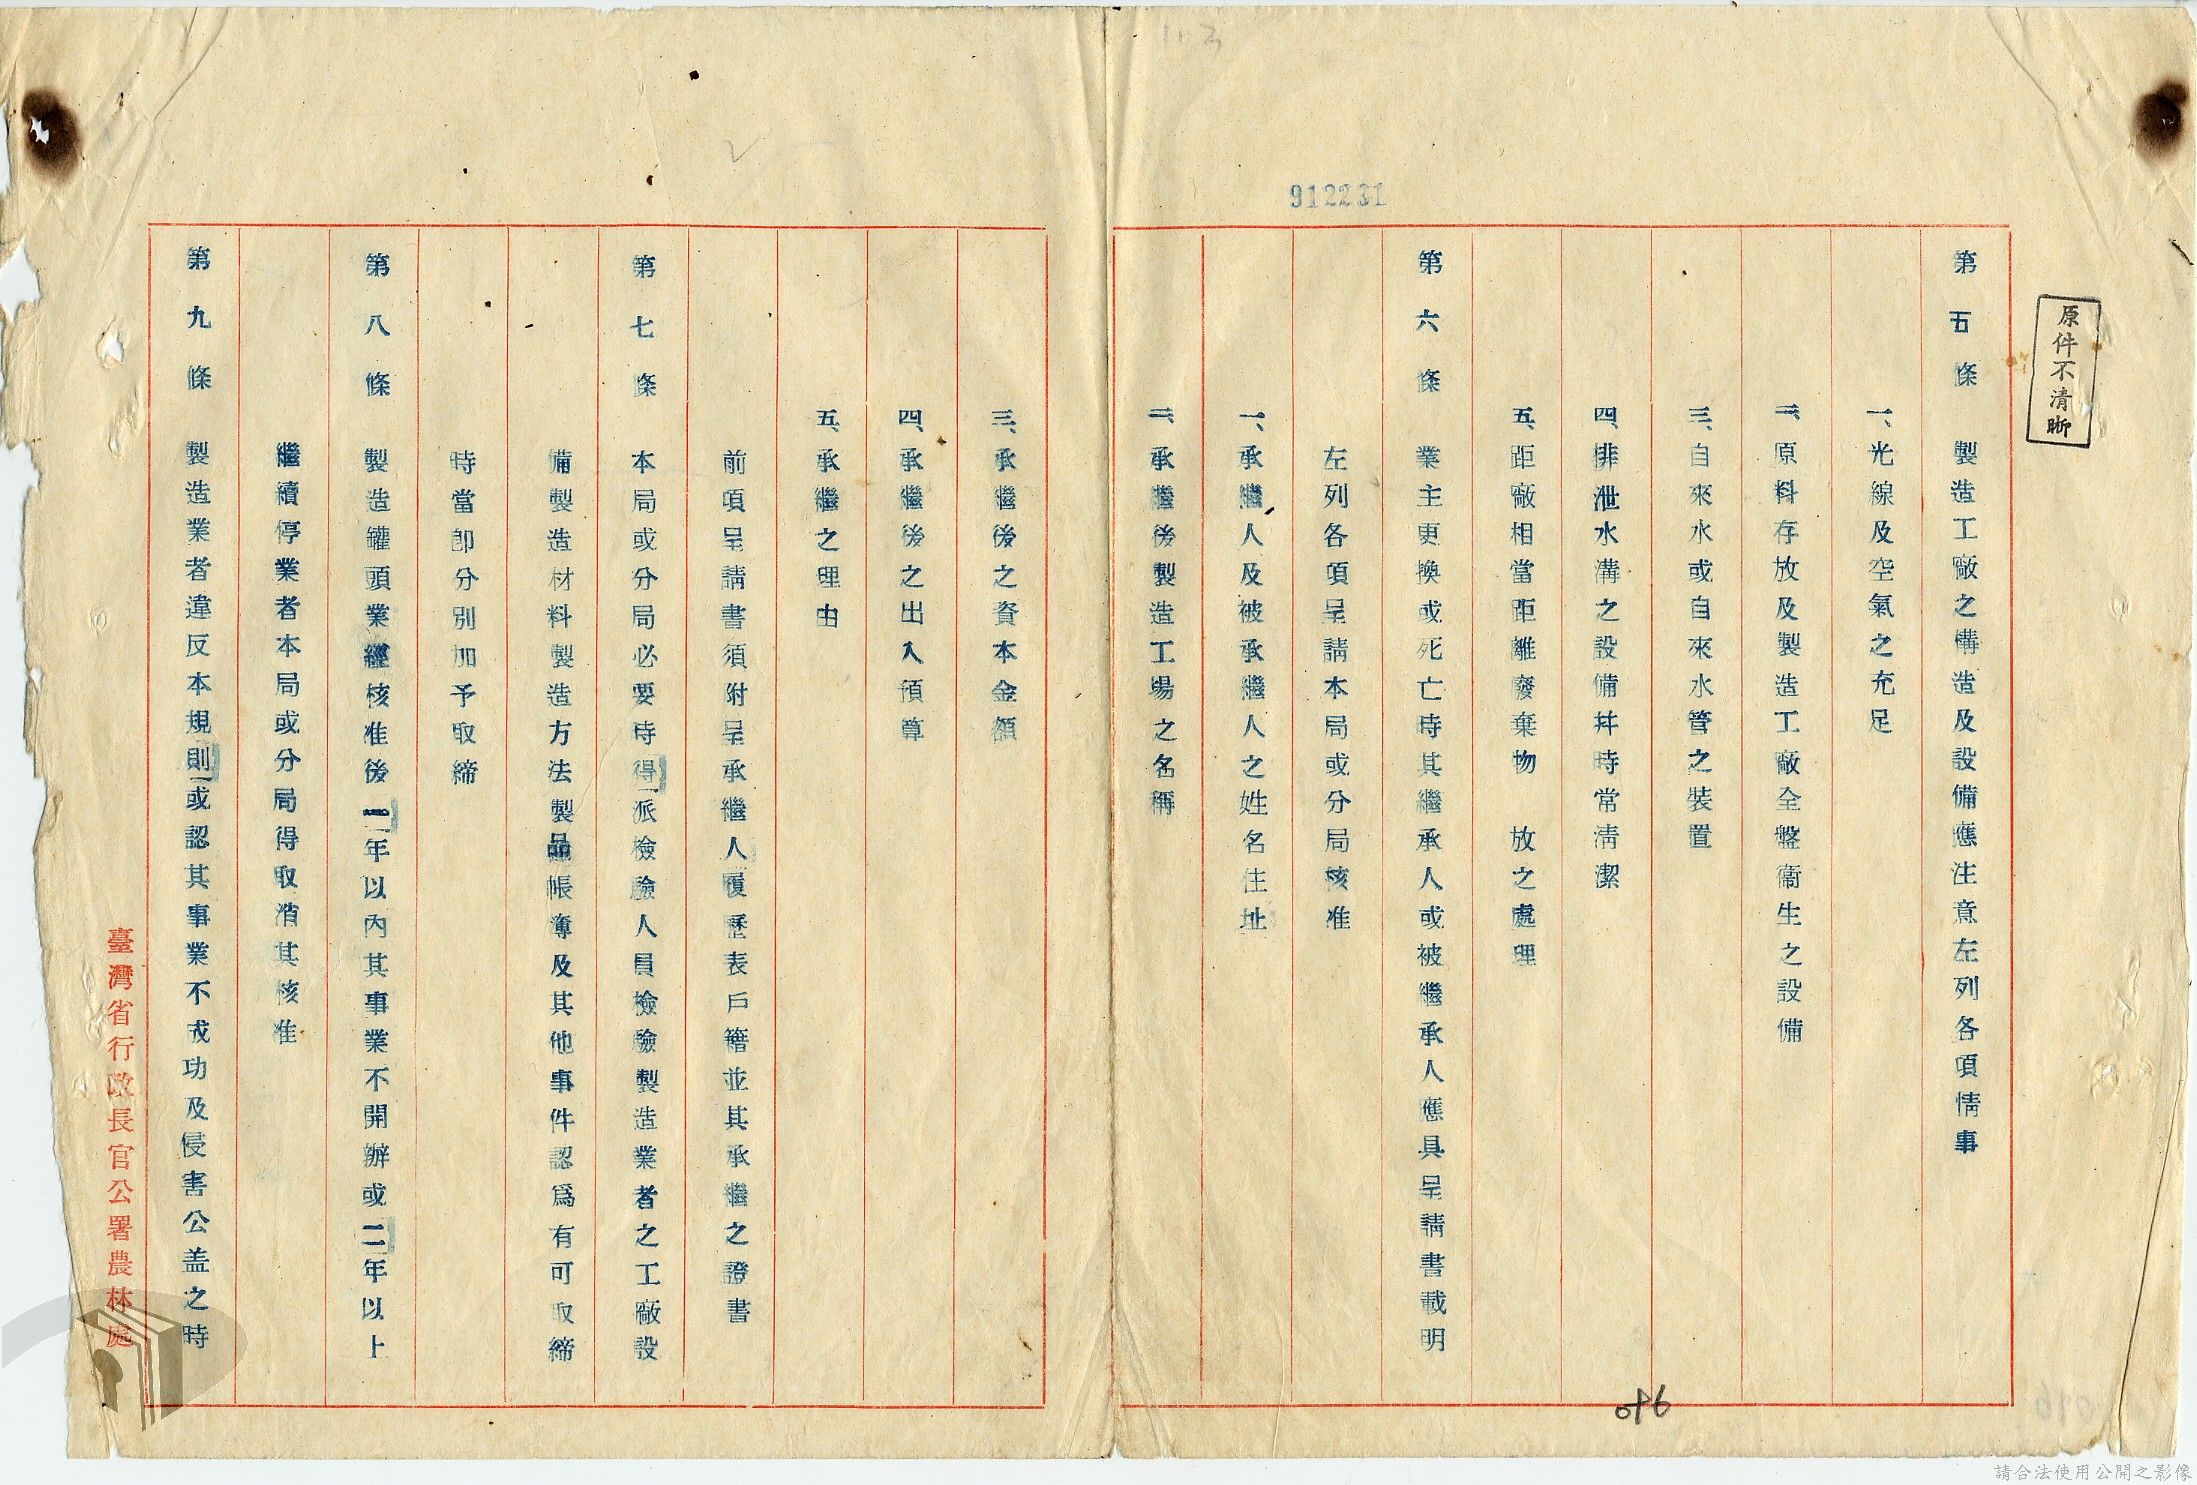 原件不清晰
912231
第五條　製造工廠之構造及設備應注意左列各項情事
一、光線及空氣之充足
二、原料存放及製造工廠全盤衛生之設備
三、自來水或自來水管之裝置
四、排泄水溝之設備并時常清潔
五、距廠相當距離廢棄物　放之處理
第六條　業主更換或死亡時其繼承人或被繼承人應具呈請書載明
左列各項呈請本局或分局核准
一、承繼人及被承繼人之姓名住址
二、承繼後製造工場之名稱
三、承繼後之資本金額
四、承繼後之出入預算
五、承繼之理由
前項呈請書須附呈承繼人履歷表戶籍並其承繼之證書
第七條　本局或分局必要時得派檢驗人員檢驗製造業者之工廠設
備製造材料製造方法製品帳簿及其他事件認爲有可取締
時當卽分別加予取締
第八條　製造罐頭業經核准後一年以內其事業不開辦或二年以上
繼續停業者本局或分局得取消其核准
第九條　製造業者違反本規則或認其事業不成功及侵害公益之時
臺灣省行政長官公署農林處
096
請合法使用公開之影像